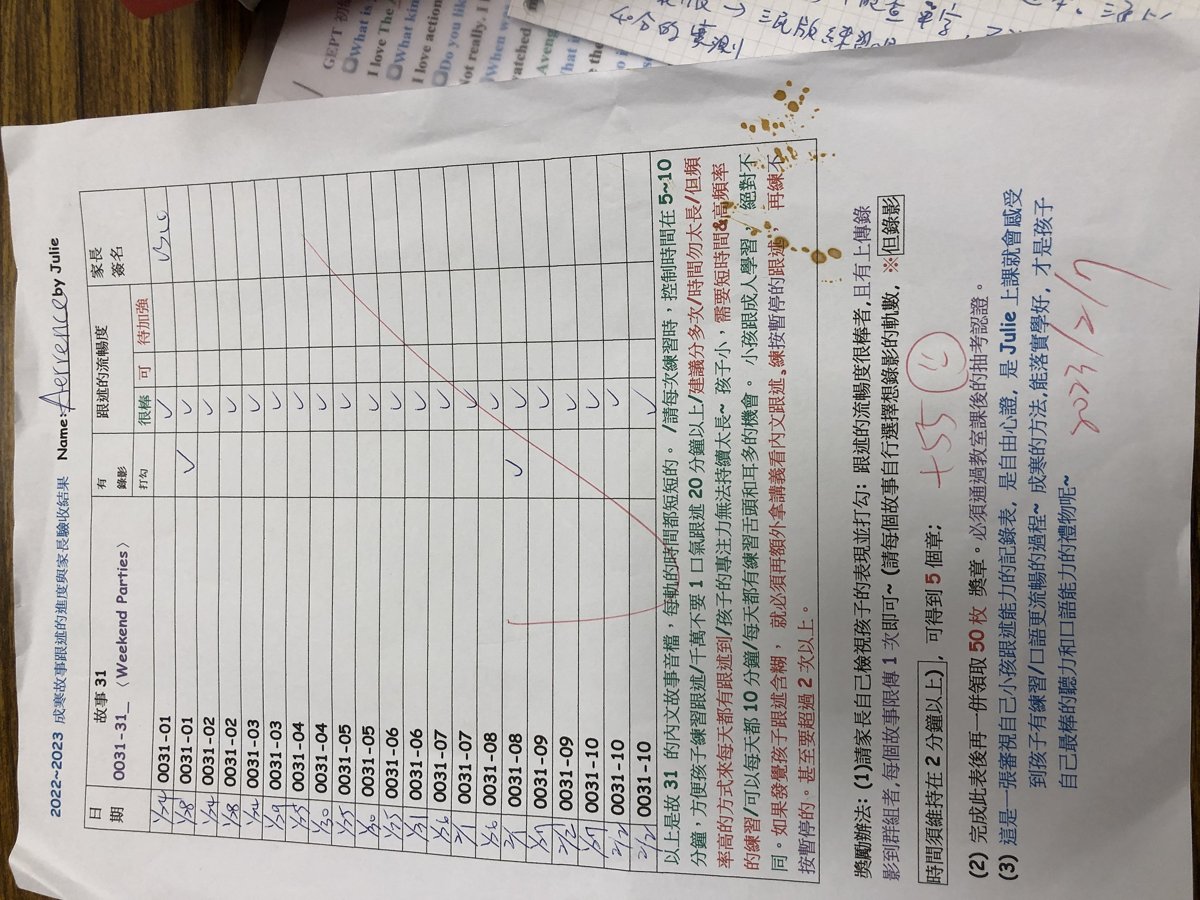 2022~2023 成寒故事跟述的進度與家長驗收結果 Name: Aerrence by Julie
日期 故事 31 0031-31_〈Weekend Parties〉 有錄影打勾 跟述的流暢度 很棒 可 待加強 家長簽名
1/24 0031-01 ✓
1/28 0031-01 ✓ ✓
1/24 0031-02 ✓
1/28 0031-02 ✓
1/24 0031-03 ✓
1/29 0031-03 ✓
1/25 0031-04 ✓
1/30 0031-04 ✓
1/25 0031-05 ✓
1/30 0031-05 ✓
1/25 0031-06 ✓
1/31 0031-06 ✓
1/26 0031-07 ✓
2/1 0031-07 ✓
1/26 0031-08 ✓
2/1 0031-08 ✓ ✓
1/27 0031-09 ✓
2/2 0031-09 ✓
1/27 0031-10 ✓
2/2 0031-10 ✓
2/2 0031-10 ✓
以上是故 31 的內文故事音檔,每軌的時間都短短的。/請每次練習時,控制時間在 5~10
分鐘,方便孩子練習跟述/千萬不要 1 口氣跟述 20 分鐘以上/建議分多次/時間勿太長/但頻
率高的方式來每天都有跟述到/孩子的專注力無法持續太長~ 孩子小,需要短時間&高頻率
的練習/可以每天都 10 分鐘/每天都有練習舌頭和耳多的機會。小孩跟成人學習,絕對不
同。如果發覺孩子跟述含糊,就必須再額外拿講義看內文跟述。練按暫停的跟述,再練不
按暫停的。甚至要超過 2 次以上。
獎勵辦法: (1)請家長自己檢視孩子的表現並打勾: 跟述的流暢度很棒者,且有上傳錄
影到群組者,每個故事限傳 1 次即可~ (請每個故事自行選擇想錄影的軌數,※但錄影
時間須維持在 2 分鐘以上),可得到 5 個章;
+55
(2) 完成此表後再一併領取 50 枚 獎章。必須通過教室課後的抽考認證。
(3) 這是一張審視自己小孩跟述能力的記錄表,是自由心證,是 Julie 上課就會感受
到孩子有練習/口語更流暢的過程~ 成寒的方法,能落實學好,才是孩子
自己最棒的聽力和口語能力的禮物呢~
2023/2/7
GEPT
What is
I love The
What kin
I love action
Do you like
Not really. I
When w
watched
Aveng
What i
the